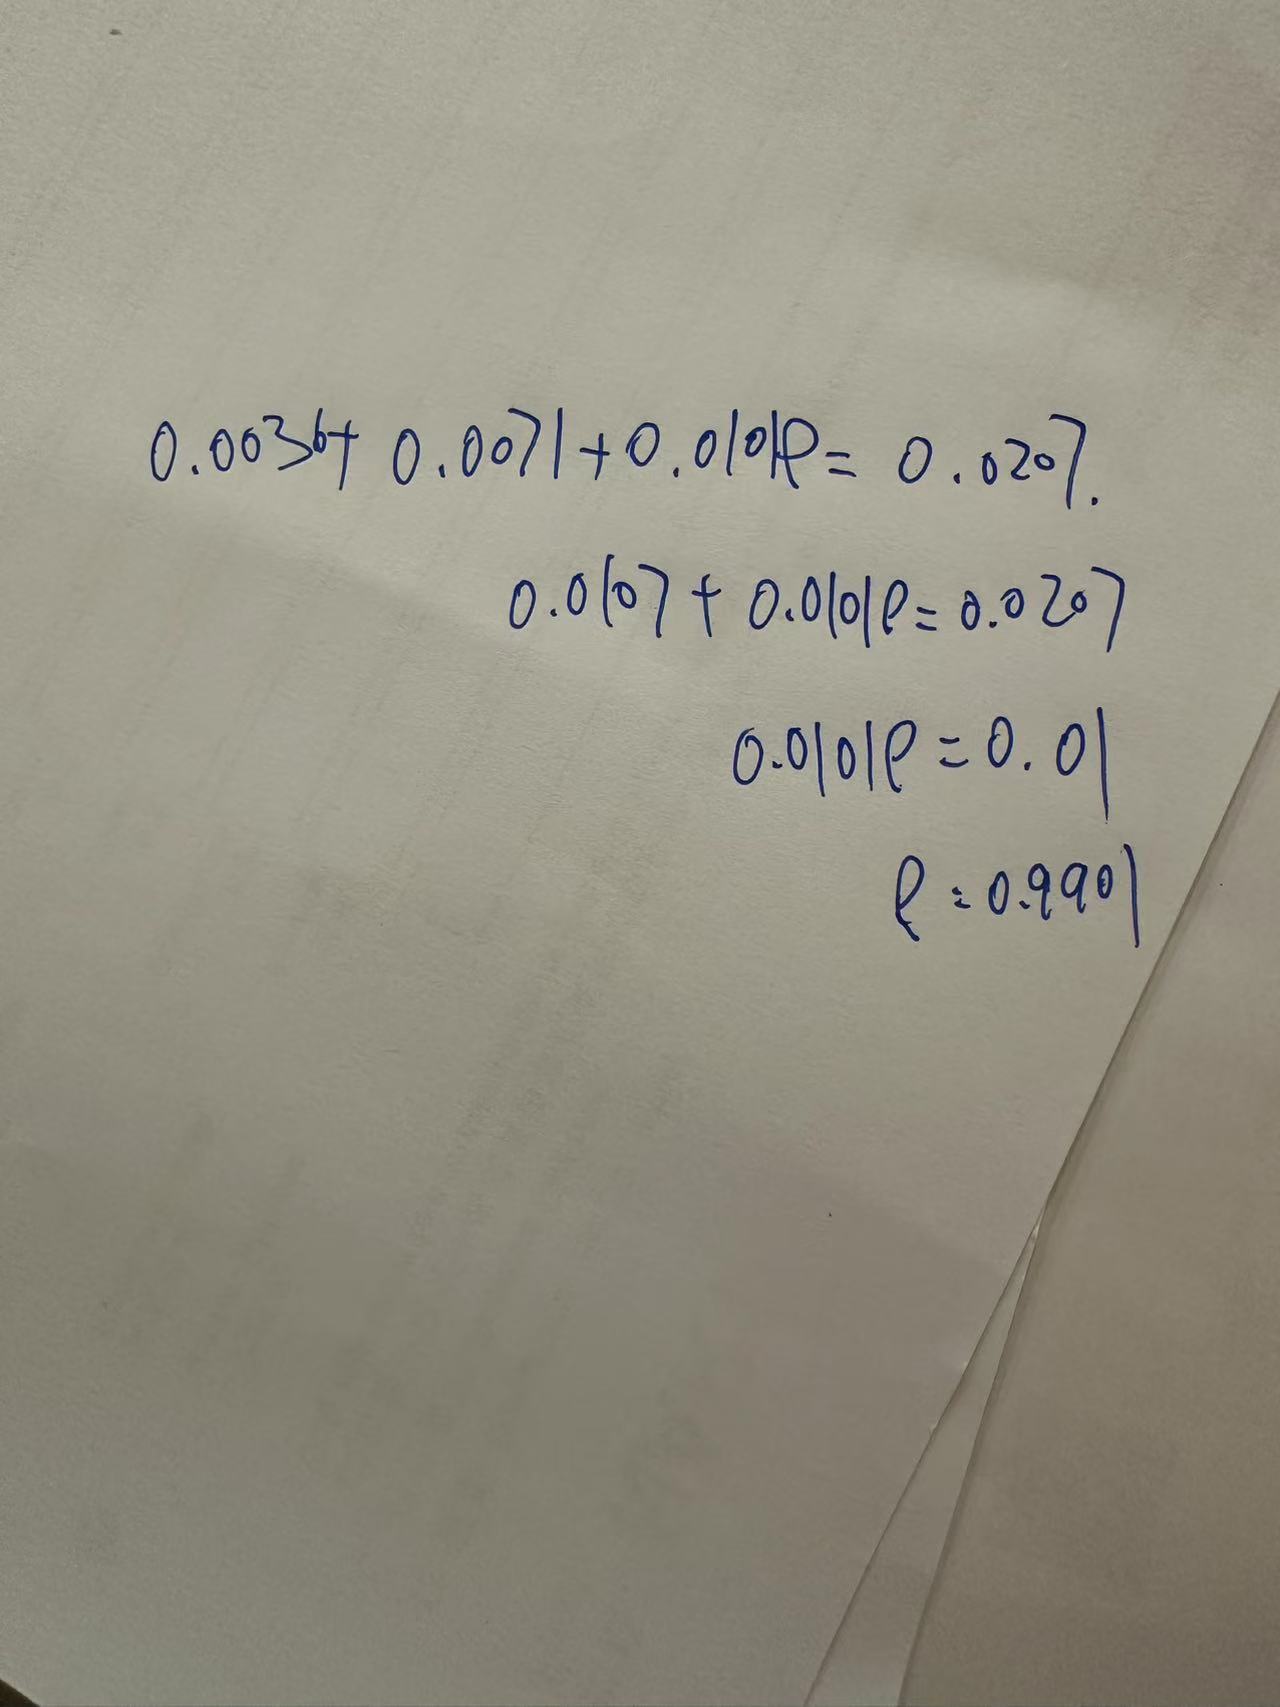 0.0036+ 0.0071+0.0101ρ= 0.0207.
0.0107+ 0.0101ρ=0.0207
0.0101ρ=0.01
ρ=0.9901